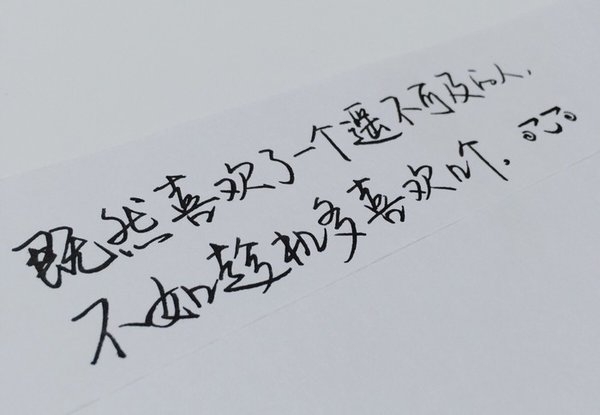 既然喜欢了一个遥不可及的人.
不如趁机多喜欢几个.